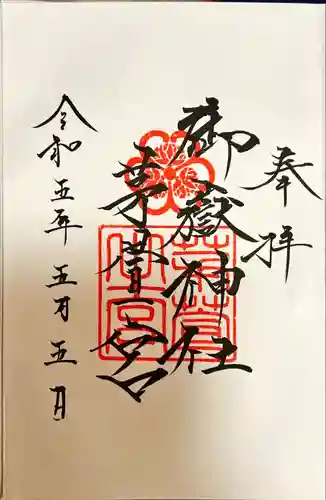 奉拝
御嶽神社
茅萱宮
令和五年五月五日